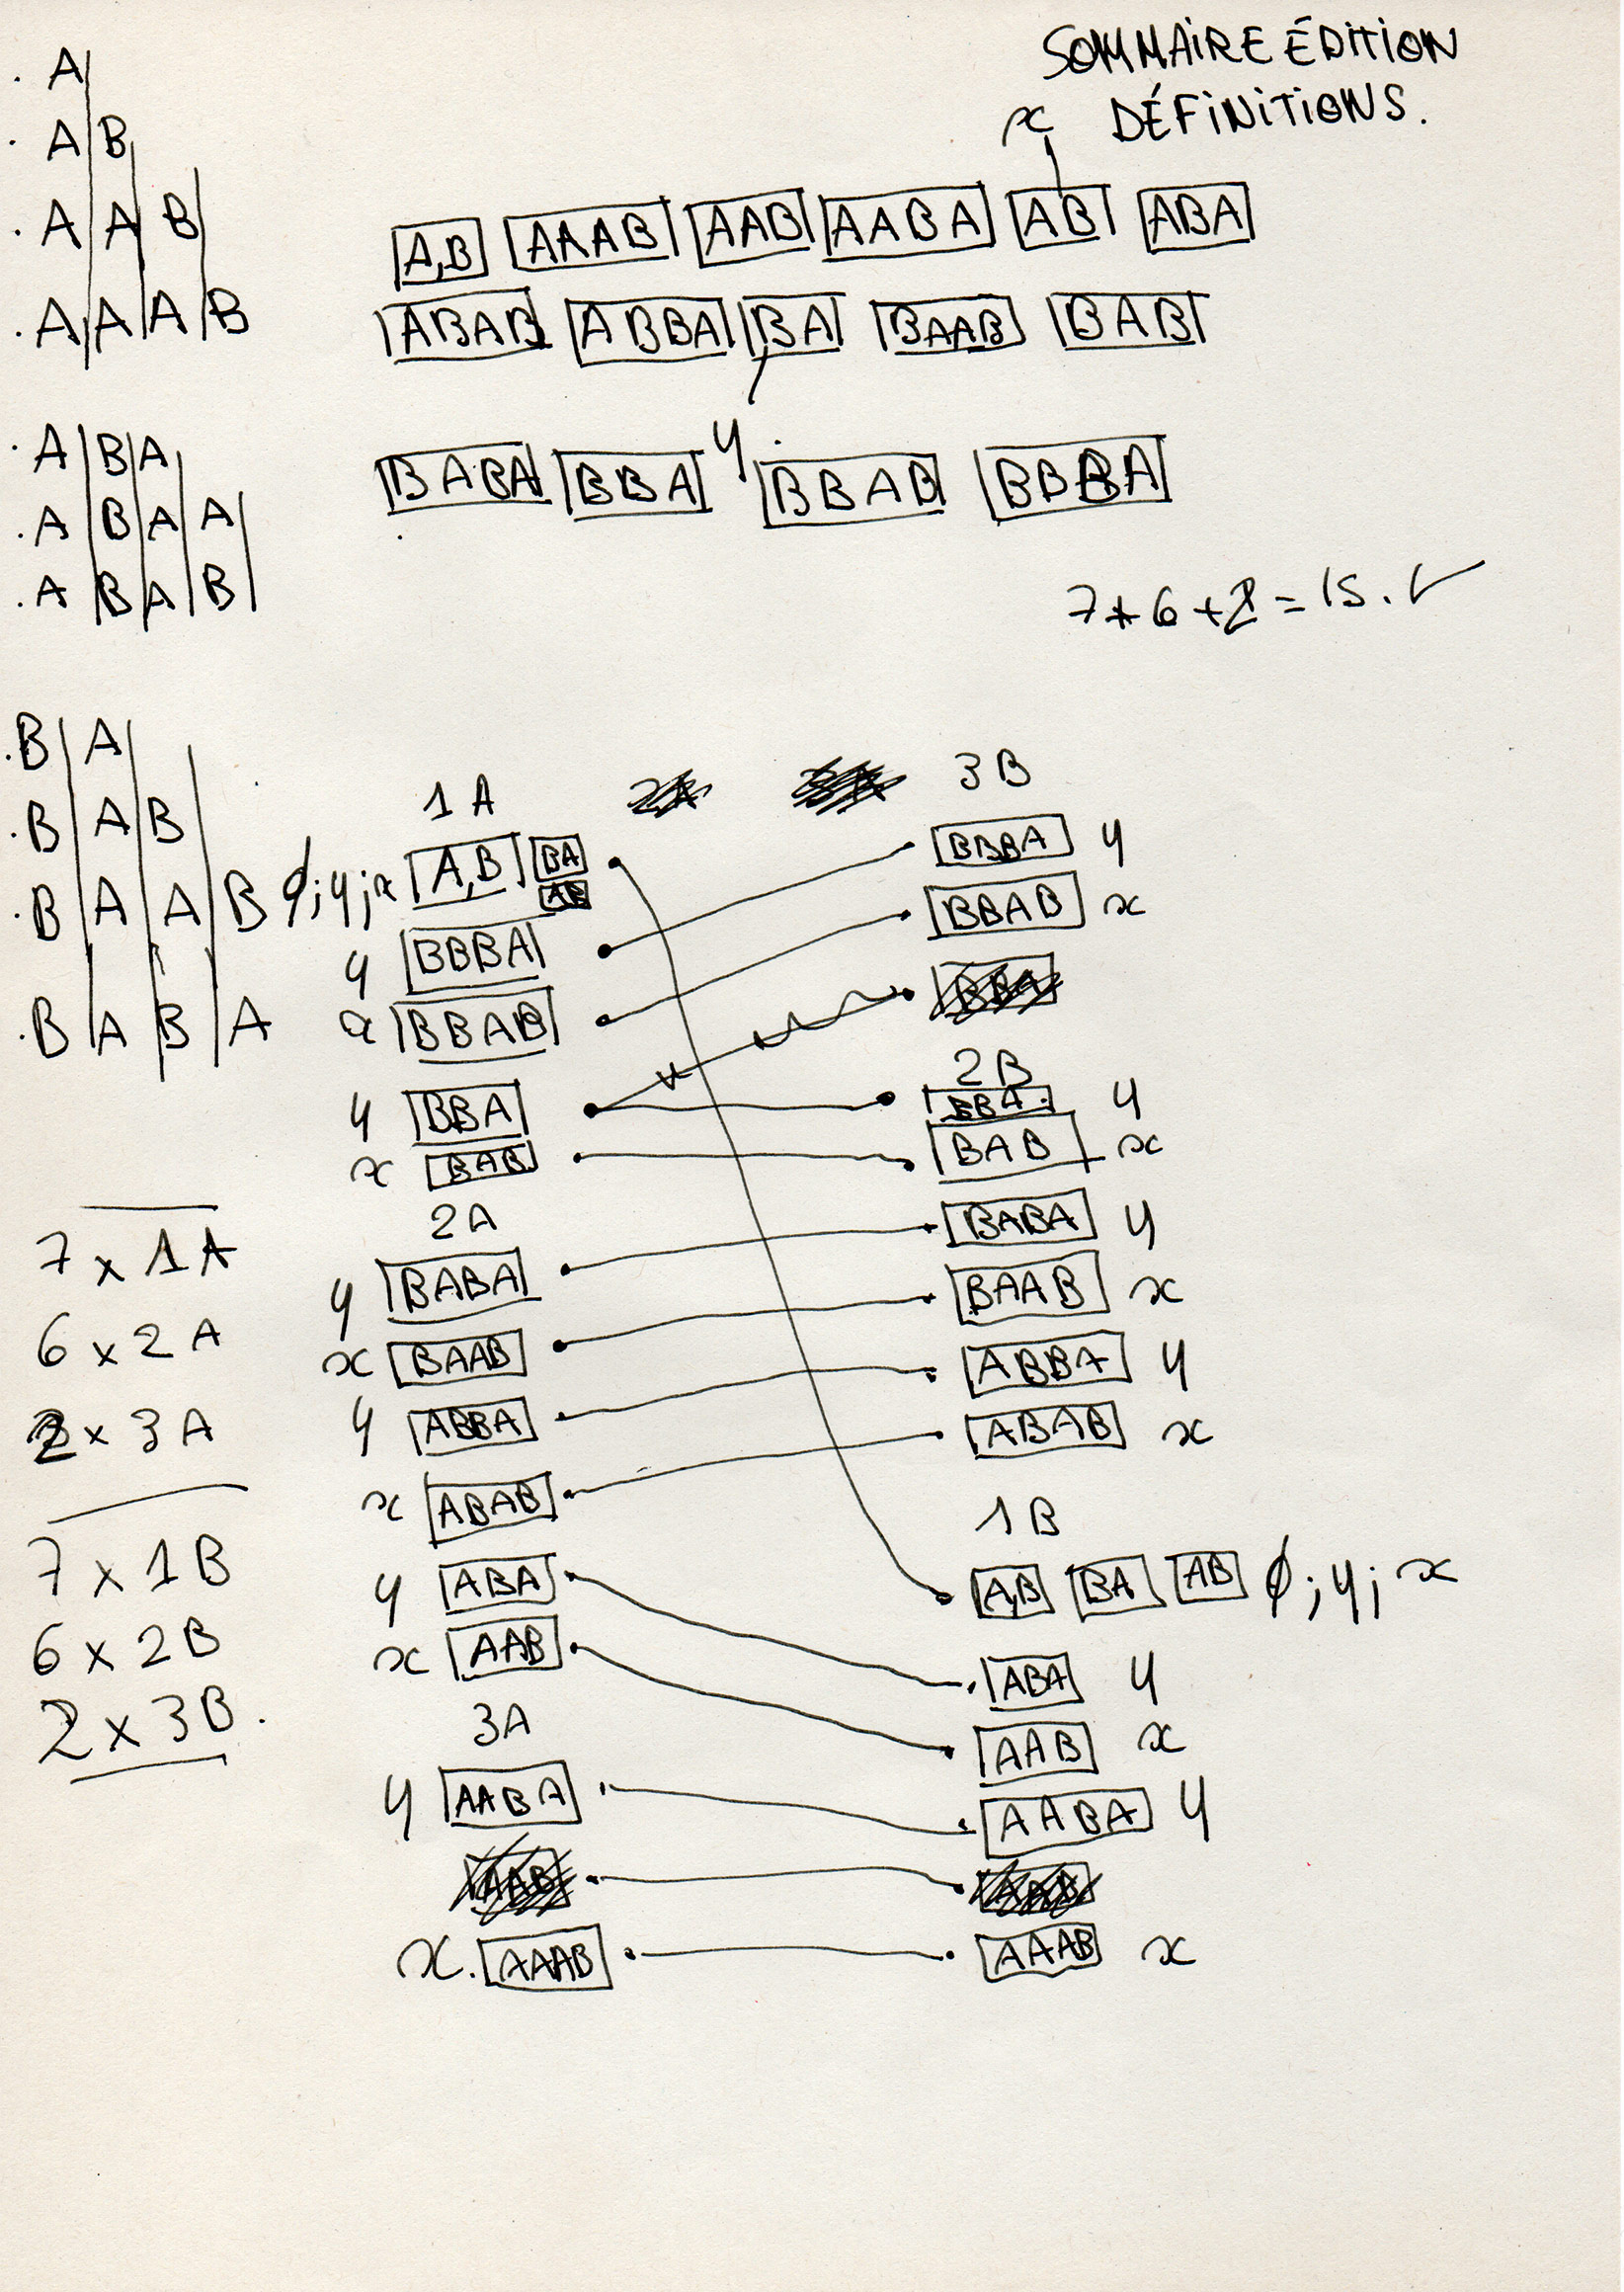 SOMMAIRE ÉDITION
x DÉFINITIONS.
. A|
. A|B|
. A|A|B|
. A|A|A|B
A,B AAAB AAB AABA AB ABA
ABAB ABBA BA BAAB BAB
y
BABA BBA BBAB BBBA
. A|B|A|
. A|B|A|A|
. A|B|A|B|
7+6+2=15. ✓
. B|A|
. B|A|B|
. B|A|A|B
. B|A|B|A
1A 3B
ø;y;x A,B BA AB BBBA y
y BBBA BBAB x
x BBAB BBA
2B
y BBA BBA y
x BAB BAB x
2A
y BABA BABA y
x BAAB BAAB x
y ABBA ABBA y
x ABAB ABAB x
1B
y ABA A,B BA AB ø;y;x
x AAB ABA y
3A AAB x
y AABA AABA y
AAB AAB
x. AAAB AAAB x
7 x 1A
6 x 2A
2 x 3A
7 x 1B
6 x 2B
2 x 3B.